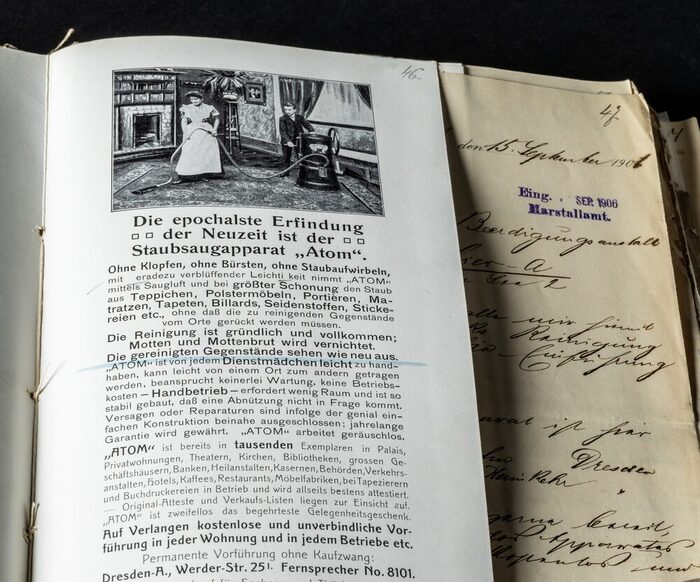 46.
Die epochalste Erfindung
□ □ der Neuzeit ist der □ □
Staubsaugapparat „Atom“.
Ohne Klopfen, ohne Bürsten, ohne Staubaufwirbeln,
mit eradezu verblüffender Leichti keit nimmt „ATOM“
mittels Saugluft und bei größter Schonung den Staub
aus Teppichen, Polstermöbeln, Portièren, Ma-
tratzen, Tapeten, Billards, Seidenstoffen, Sticke-
reien etc., ohne daß die zu reinigenden Gegenstände
vom Orte gerückt werden müssen.
Die Reinigung ist gründlich und vollkommen;
Motten und Mottenbrut wird vernichtet.
Die gereinigten Gegenstände sehen wie neu aus.
„ATOM“ ist von jedem Dienstmädchen leicht zu hand-
haben, kann leicht von einem Ort zum andern getragen
werden, beansprucht keinerlei Wartung, keine Betriebs-
kosten — Handbetrieb — erfordert wenig Raum und ist so
stabil gebaut, daß eine Abnützung nicht in Frage kommt.
Versagen oder Reparaturen sind infolge der genial ein-
fachen Konstruktion beinahe ausgeschlossen; jahrelange
Garantie wird gewährt. „ATOM“ arbeitet geräuschlos.
„ATOM“ ist bereits in tausenden Exemplaren in Palais,
Privatwohnungen, Theatern, Kirchen, Bibliotheken, grossen Ge-
schäftshäusern, Banken, Heilanstalten, Kasernen, Behörden, Verkehrs-
anstalten, Hotels, Kaffees, Restaurants, Möbelfabriken, bei Tapezierern
und Buchdruckereien in Betrieb und wird allseits bestens attestiert.
— Original-Atteste und Verkaufs-Listen liegen zur Einsicht auf.
„ATOM“ ist zweifellos das begehrteste Gelegenheitsgeschenk.
Auf Verlangen kostenlose und unverbindliche Vor-
führung in jeder Wohnung und in jedem Betriebe etc.
Permanente Vorführung ohne Kaufzwang:
Dresden-A., Werder-Str. 25 I. Fernsprecher No. 8101.
47
den 15. September 190
Eing. SEP. 1906
Marstallamt.
Beerdigungsanstalt
Reinigung
ist hier
Dresden